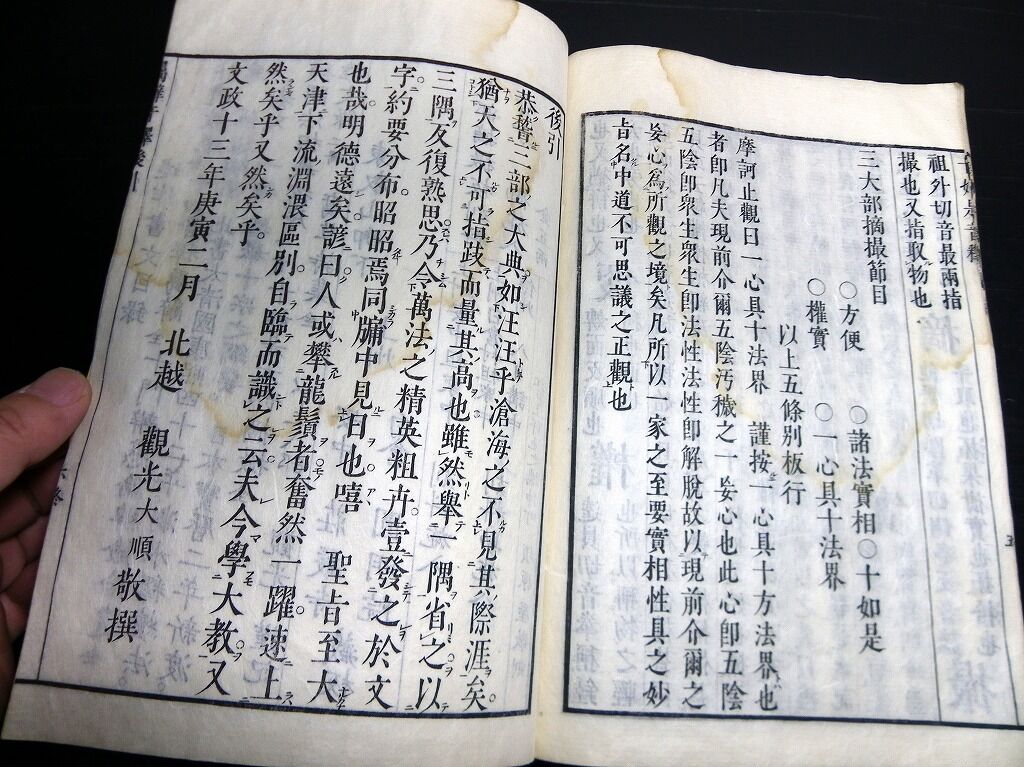 祖外切音最兩指
撮也又指取物也
三大部摘撮節目
○方便 ○諸法實相○十如是
○權實 ○一心具十法界
以上五條別板行
摩訶止觀曰一心具十法界 謹按一心具十方法界也
者卽凡夫現前介爾五陰汚穢之一妄心也此心卽五陰
五陰卽衆生衆生卽法性法性卽解脫故以現前介爾之
妄心爲所觀之境矣凡所以一家之至要實相性具之妙
㫖名中道不可思議之正觀也
五
後引
恭瞽三部之大典如汪汪乎滄海之不見其際涯矣
猶天之不可㨖跂而量其高也雖然舉一隅省之以
三隅反復熟思乃令萬法之精英粗卉壹發之於文
字約要分布昭昭焉同牖中見日也嘻 聖㫖至大
也哉明德遠矣諺曰人或攀龍鬚者奮然一躍速上
天津下流淵渨區別自臨而識之云夫今學大教又
然矣乎又然矣乎
文政十三年庚寅二月 北越 觀光大順敬撰